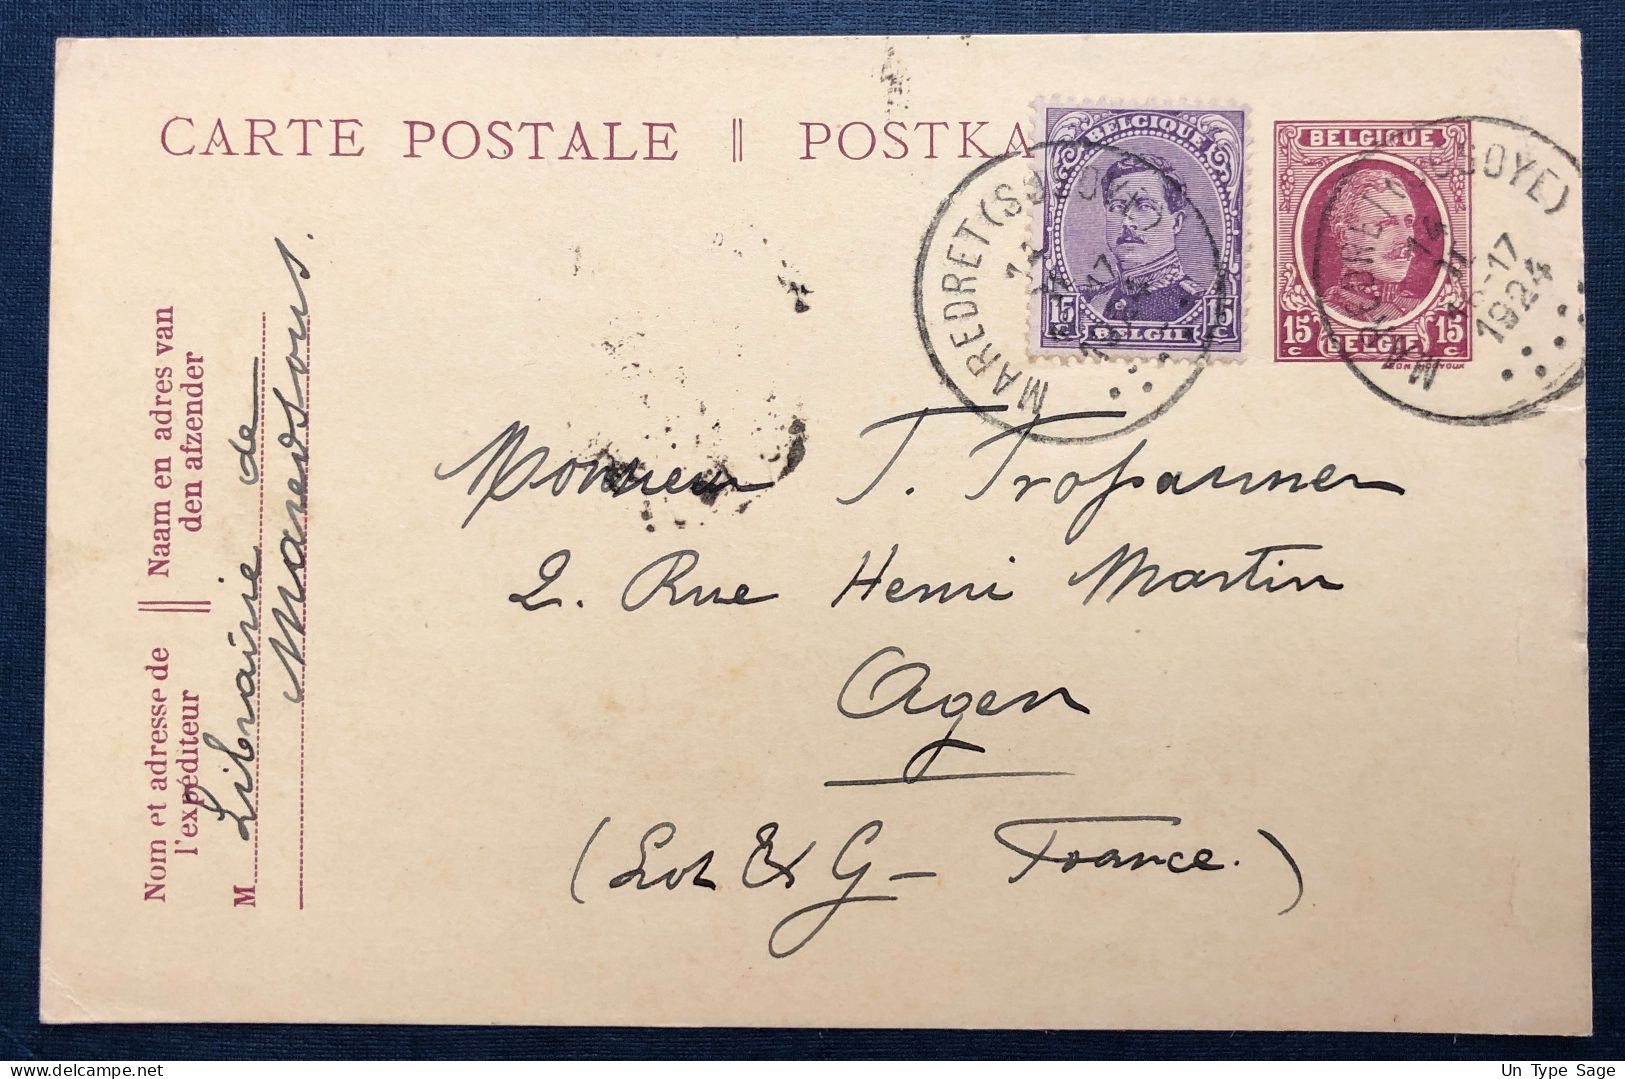 CARTE POSTALE || POSTKA
BELGIQUE
15 15
c c
BELGIË
BELGIQUE
15 15
c
BELGIË
MAREDRET (SOSOYE)
16-17
1924
Naam en adres van
den afzender
Nom et adresse de
l'expéditeur
M Librairie de
Maredsous.
Monsieur T.
2. Rue Henri Martin
Agen
(Lot & G- France.)
Un Type Sage